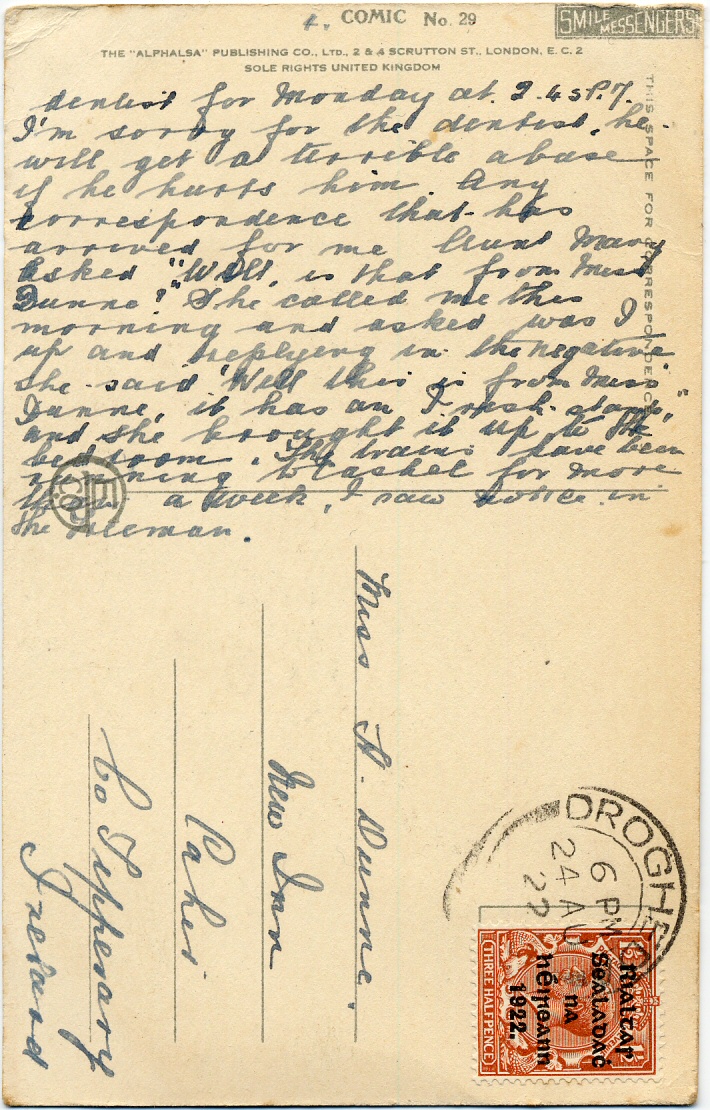 4. COMIC No. 29
SMILE MESSENGERS
THE "ALPHALSA" PUBLISHING CO., LTD., 2 & 4 SCRUTTON ST., LONDON, E.C. 2
SOLE RIGHTS UNITED KINGDOM
THIS SPACE FOR CORRESPONDENCE
dentist for Monday at 2.45 P.7.
I'm sorry for the dentist, he
will get a terrible abuse
if he hurts him. Any
correspondence that has
arrived for me Aunt Mary
asked "Will, is that from Miss
Dunne?" She called me this
morning and asked was I
up and replying in the negative
she said "Well this is from Miss
Dunne, it has an Irish stamp,"
and she brought it up to the
bedroom. The trains have been
running to Cashel for more
than a week, I saw notice in
the Freeman.
Miss A. Dunne,
New Inn
Caher
Co Tipperary
Ireland
DROGHEDA
6 PM
24 AU
22
Rialtar
Sealadaċ
na
hÉireann
1922.
THREE HALFPENCE